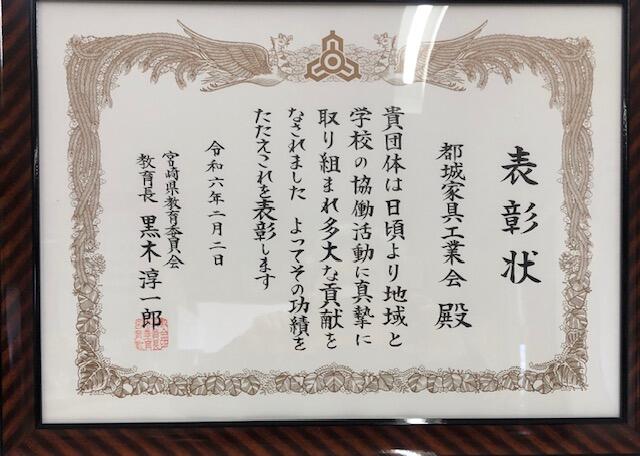 表彰状
都城家具工業会 殿
貴団体は日頃より地域と
学校の協働活動に真摯に
取り組まれ多大な貢献を
なされました よってその功績を
たたえこれを表彰します
令和六年二月二日
宮崎県教育委員会
教育長 黒木淳一郎